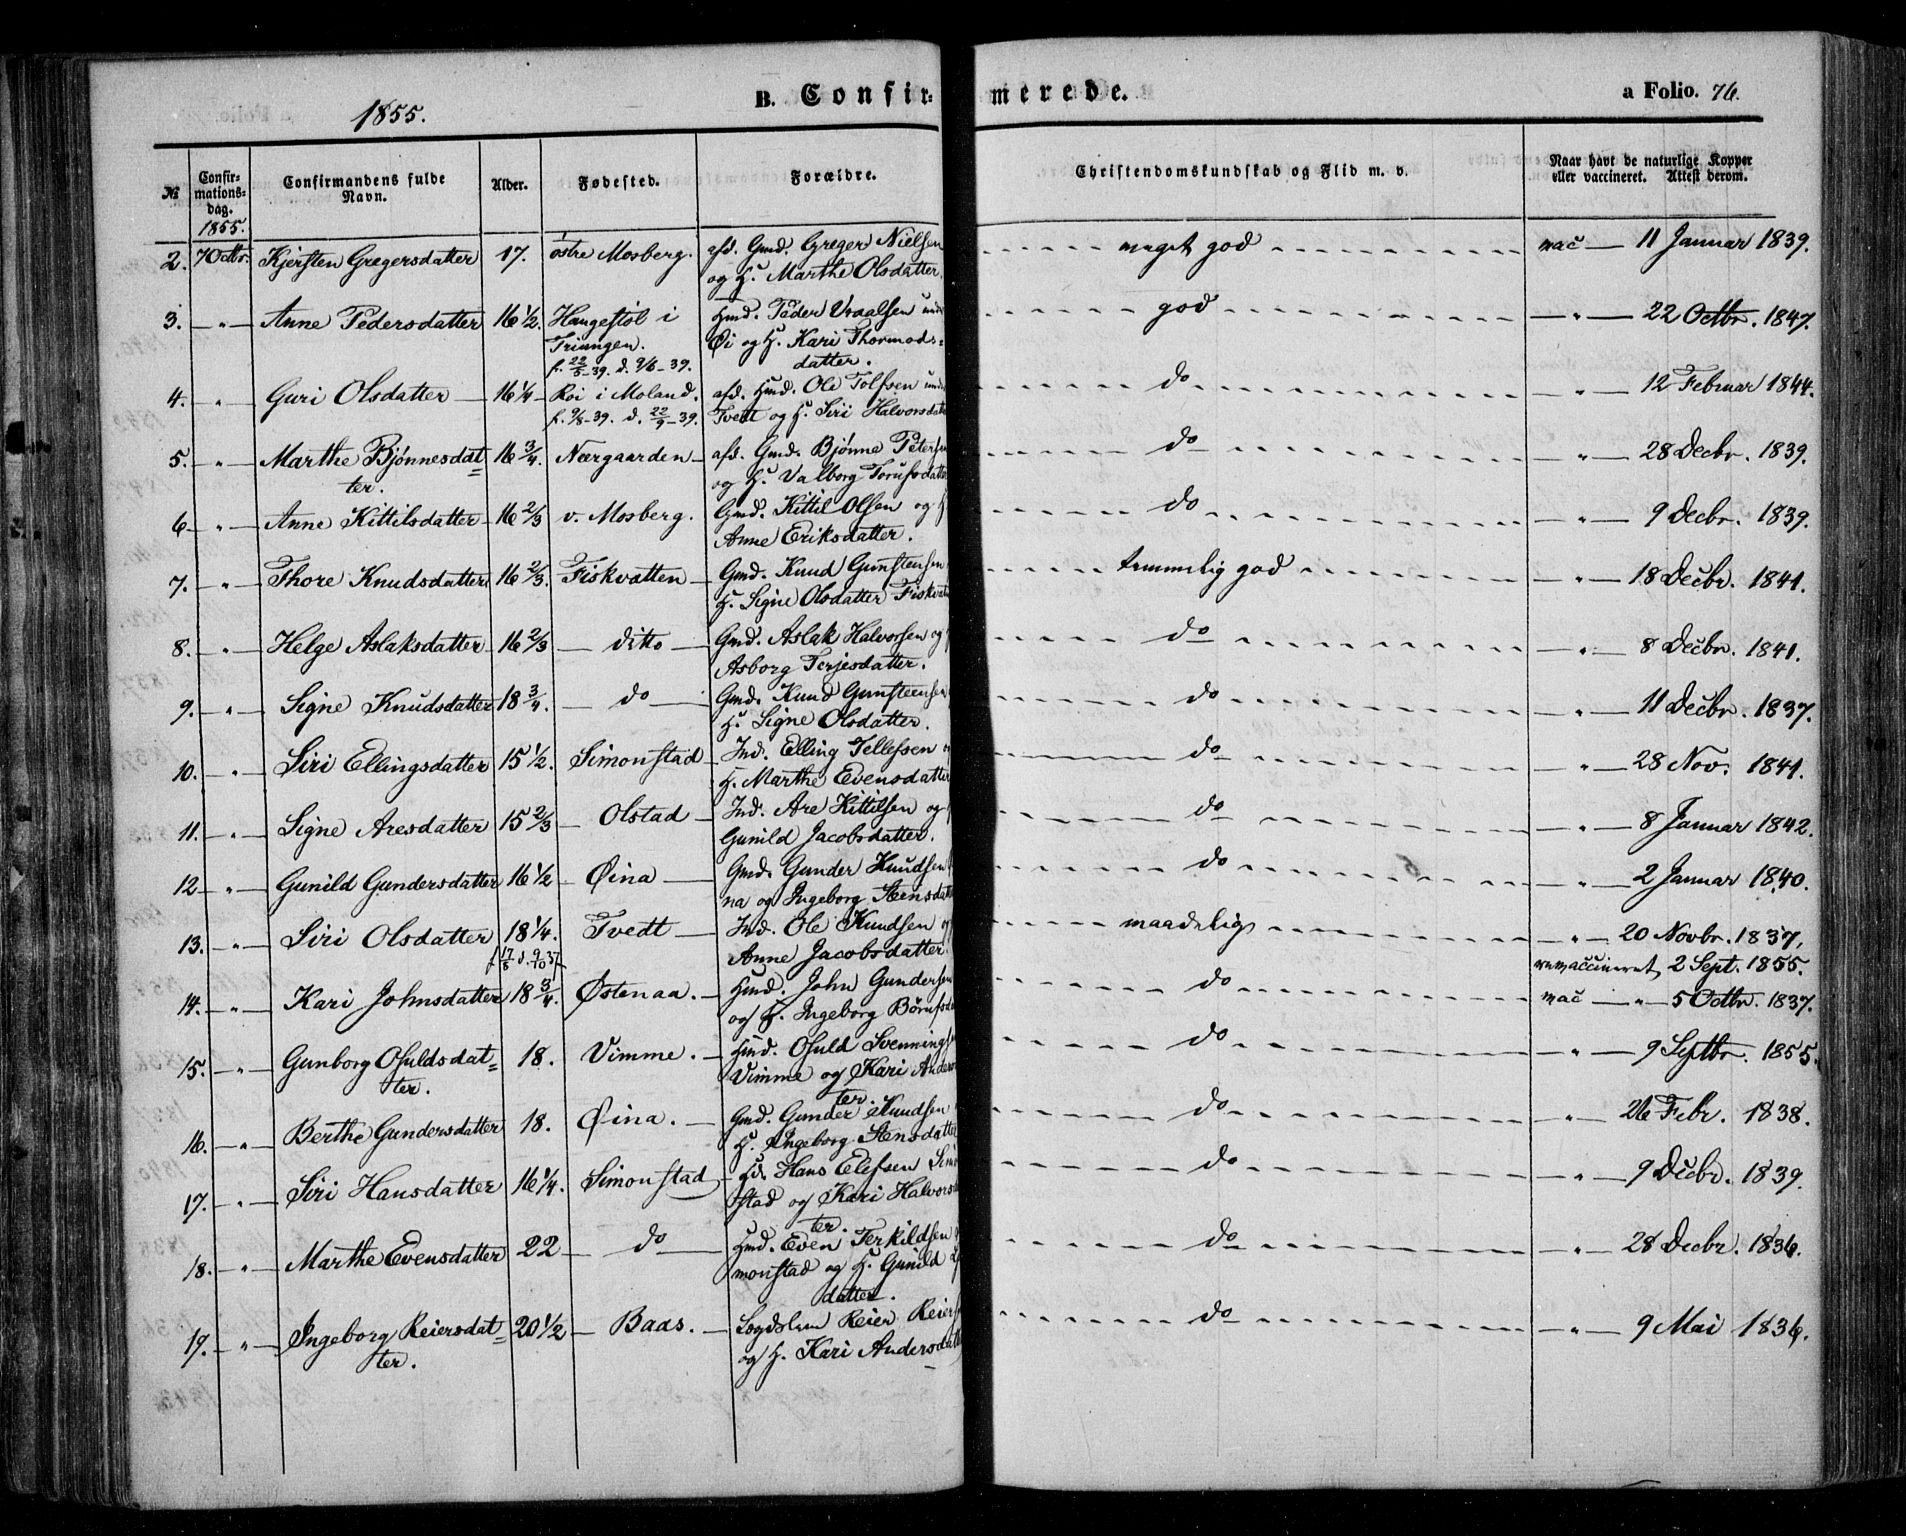 1855.
B. Confir-
merede.
a Folio. 76.
№
Confir-
mations-
dag.
1855.
Confirmandens fulde
Navn.
Alder.
Fødested.
Forældre.
Christendomskundskab og Flid m. v.
Naar havt de naturlige Kopper
eller vaccineret. Attest derom.
2. 7 Octbr. Kjersten Gregersdatter 17. østre Mosberg. afd. Gmd. Greger Nielsen meget god vac — 11 Januar 1839.
og H. Marthe Olsdatter.
3. — " — Anne Pedersdatter 16 1/2. Haugestøl i Hmd. Peder Vraalsen god — " — 22 Octbr. 1847.
Triungen. Øi og H. Kari Thormods=
f. 22/5-39. d. 9/6-39. datter.
4. " Guri Olsdatter — 16 1/4 Røi i Moland. afd. Hmd. Ole Tolfsen do " — 12 Februar 1844.
f. 9/8-39. d. 22/9-39. Tvedt og H. Siri Halvorsdat
5. — " — Marthe Bjønnesdat= 16 3/4. Nærgaarden afd. Gmd. Bjønne Peters do — " — 28 Decbr. 1839.
ter. og H. Valborg
6 — " — Anne Kittilsdatter 16 2/3 v. Mosberg. Gmd. Kittil Olsen og H do — " — 9 Decbr. 1839.
Anne Eriksdatter.
7. — " — Thore Knudsdatter 16 2/3. Fiskvatten Gmd. Knud Gunstensen temmelig god — " — 18 Decbr. 1841.
H. Signe Olsdatter Fiskvat
8. — " — Helge Aslaksdatter 16 2/3 — ditto — Gmd. Aslak Halvorsen og do — " — 8 Decbr. 1841.
Asborg Terjesdatter.
9. — " — Signe Knudsdatter 18 3/4. — do — Gmd. Knud Gunsteensen do — " — 11 Decbr. 1837.
H. Signe Olsdatter.
10. — " — Siri Ellingsdatter 15 1/2. Simonstad Ind. Elling Tellefsen do — " — 28 Nov. 1841.
H. Marthe Evensdatter
11. — " — Signe Aresdatter 15 2/3 — Olstad — Ind. Are Kittilsen og do — " — 8 Januar 1842.
Gunild Jacobsdatter.
12 — " — Gunild Gundersdatter 16 1/2 — Øina — Gmd. Gunder Knudsen do — " — 2 Januar 1840.
na og Ingeborg Stensdatt
13. — " — Siri Olsdatter 18 1/4. Tvedt — Ind. Ole Knudsen maadelig — " — 20 Novbr. 1837,
f 17/8 d. 9/10 37 Anne Jacobsdatter revaccineret 2 Sept. 1855.
14. — " — Kari Johnsdatter 18 3/4. Østenaa. — Hmd. John Gundersen do vac — " — 5 Octbr. 1837.
og H. Ingeborg
15. — " — Gunborg Osuldsdat= 18. Vimme. — Hmd. Osuld Svennings do " — 9 Septbr. 1855.
ter. Vimme og Kari Anders
ter.
16. — " — Berthe Gundersdatter 18. Øina. — Gmd. Gunder Knudsen do " — 26 Febr. 1838.
H. Ingeborg Stensdatter
17. — " — Siri Hansdatter 16 1/4. Simonstad Hd. Hans Elefsen Sim do " — 9 Decbr. 1839.
stad og Kari Halvors
ter.
18. — " — Marthe Evensdatter 22 — do — Hmd. Even Terkildsen do — " — 28 Decbr. 1836.
monstad og H. Gunild
datter.
19. — " — Ingeborg Reiersdat= 20 1/2 — Baas. — Lægdslem Reier Reiers do — " — 9 Mai 1836.
ter. og H. Kari Andersdatt